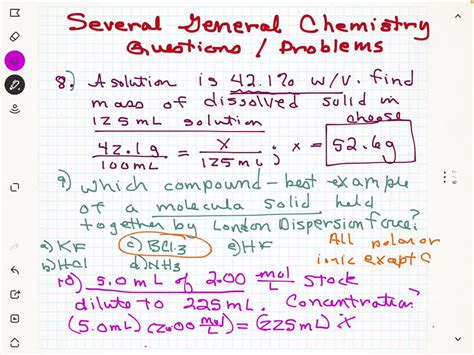 Several General Chemistry
Questions / Problems
8) A solution is 42.1% w/v. find
mass of dissolved solid in
125 mL solution choose
42.1g / 100mL = x / 125mL ; x = 52.6g
9) which compound - best example
of a molecula solid held
together by London Dispersion force?
a) KF c) BCl3 e) HF All polar or
b) HCl d) NH3 ionic exept C
10) 5.0mL of 2.00 mol/L Stock
dilute to 225mL. Concentration?
(5.0mL)(2.00 mol/L) = (225mL) x